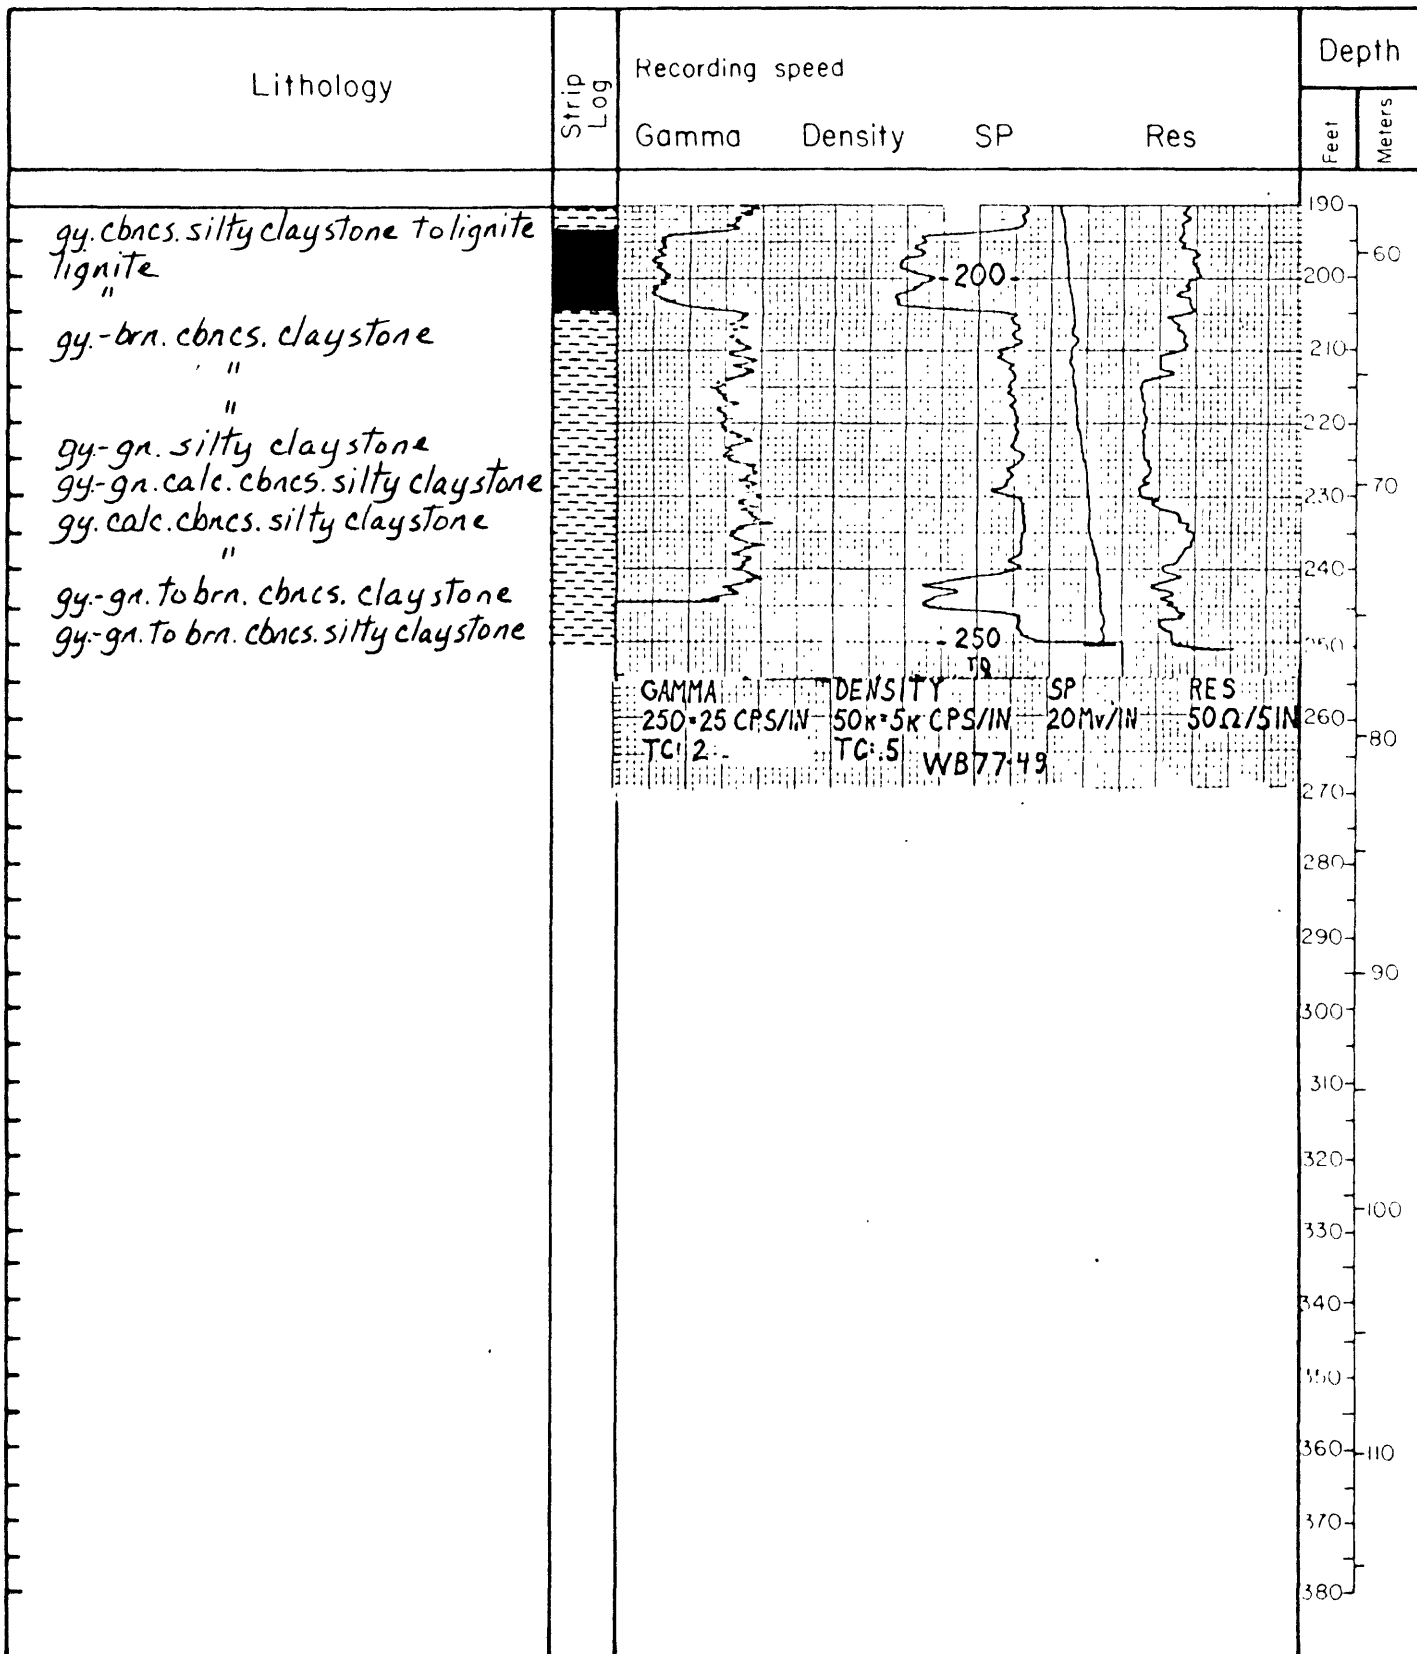 Lithology
Strip Log
Recording speed
Gamma Density SP Res
Depth
Feet
Meters
gy. cbncs. silty claystone to lignite
lignite
"
gy.-brn. cbncs. claystone
"
"
gy.-gn. silty claystone
gy.-gn. calc. cbncs. silty claystone
gy. calc. cbncs. silty claystone
"
gy.-gn. to brn. cbncs. claystone
gy.-gn. to brn. cbncs. silty claystone
200
250
GAMMA DENSITY SP RES
250=25 CPS/IN 50K=5K CPS/IN 20Mv/IN 50Ω/5IN
TC: 2 TC: .5 WB77-49
190
200
210
220
230
240
250
260
270
280
290
300
310
320
330
340
350
360
370
380
60
70
80
90
100
110